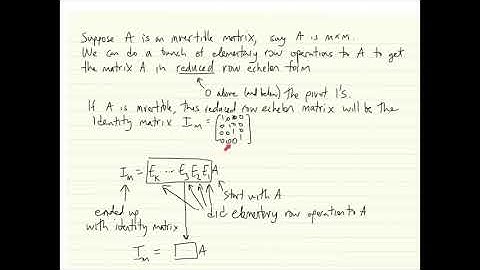 Suppose A is an invertible matrix, say A is m×m.
We can do a bunch of elementary row operations to A to get
the matrix A in reduced row echelon form
0 above (and below) the pivot 1's.
If A is invertible, this reduced row echelon matrix will be the
identity matrix Im = [1000
0100
0010
0001]
Im = Ek ... E3 E2 E1 A
start with A
ended up
with identity matrix
did elementary row operation to A
Im = A